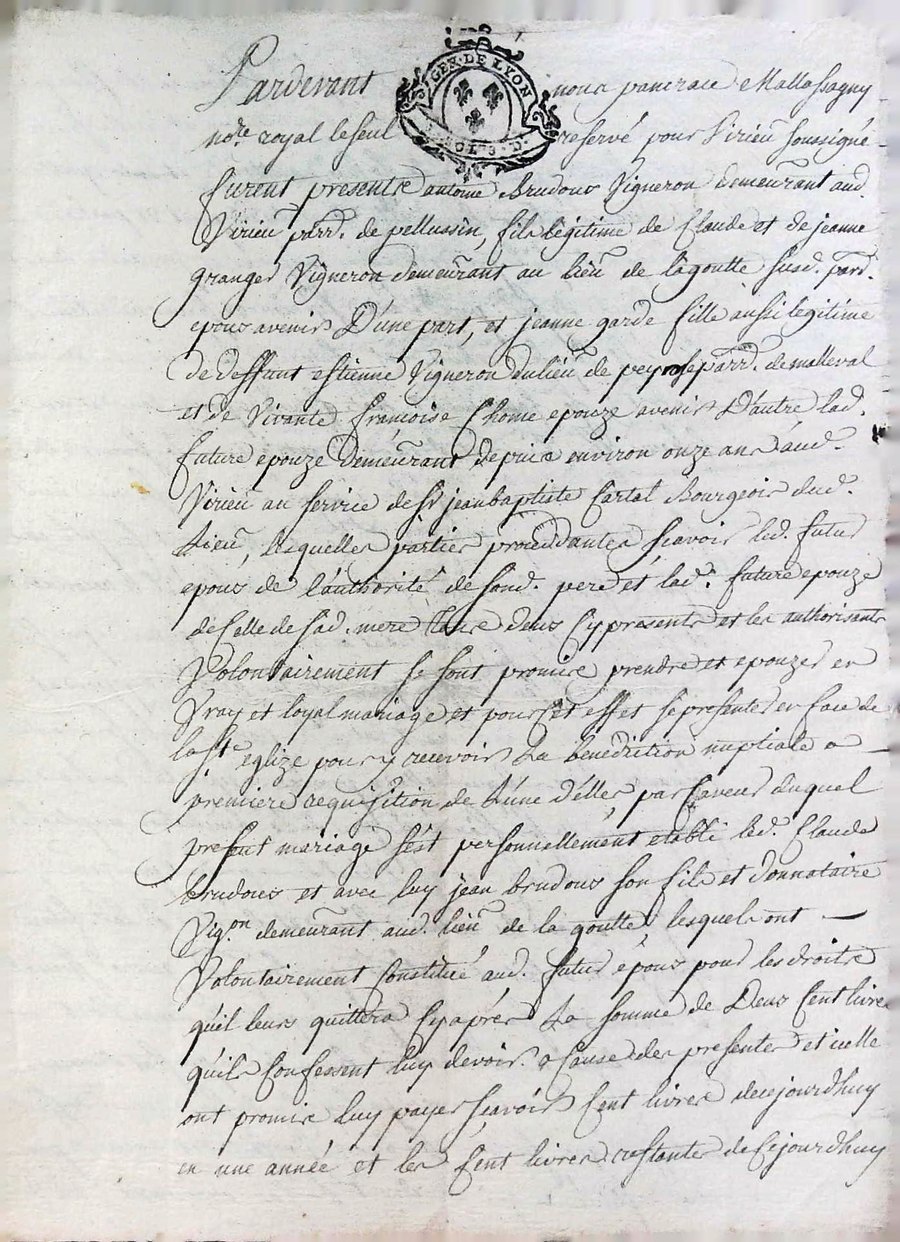 GEN. DE LYON
SOLS. D.
Pardevant nous pancrace Mallassagny
nore. royal le seul reservé pour Virieu soussigné
furent presents antoine Brudous Vigneron demeurant aud.
Virieu parr. de pellussin, fils legitime de Claude et de jeanne
granger Vigneron demeurant au lieu de la goutte susd. parr.
epous avenir D'une part, et jeanne garde fille aussi legitime
de deffunt estienne Vigneron du lieu de parr. de malleval
et de Vivante francoise Chome epouze avenir D'autre lad.
future epouze demeurant depuis environ onze ans aud.
Virieu au service de Sr jean baptiste Cartal Bourgeois dud.
Lieu, lesquelles parties proceddantes scavoir led. futur
epous de l'authorité de sond. pere et lad. future epouze
de Celle de sad. mere tous deus Cy presents et les authorisants
Volontairement se sont promis prendre et epouzer en
Vray et loyal mariage et pour Cet effet se presenter en face de
la Ste eglize pour y recevoir La benediction nuptiale a
premiere requisition de L'une d'elles, par faveur duquel
present mariage s'est personnellement etabli led. Claude
brudous et avec luy jean brudous son fils et donnataire
Vig.on demeurant aud. lieu de la goutte, lesquels ont
Volontairement Constitué aud. futur epous pour les droits
qu'il leurs quittera Cy aprés La somme de Deus Cent livres
qu'ils Confessent luy devoir a Cause des presentes et icelle
ont promis luy payer scavoir Cent livres decejourdhuy
en une année et les Cent livres restantes de Cejourdhuy